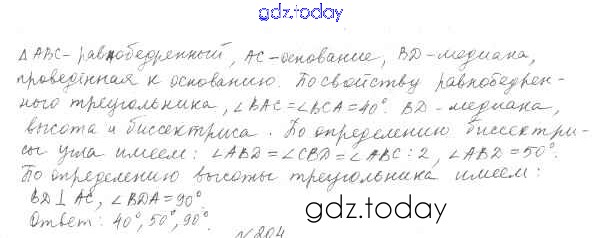 gdz.today
△ABC - равнобедренный, AC - основание, BD - медиана,
проведённая к основанию. По свойству равнобедрен-
ного треугольника, ∠BAC = ∠BCA = 40°. BD - медиана,
высота и биссектриса. По определению биссектри-
сы угла имеем: ∠ABD = ∠CBD = ∠ABC : 2, ∠ABD = 50°.
По определению высоты треугольника имеем:
BD ⊥ AC, ∠BDA = 90°.
Ответ: 40°, 50°, 90°.
gdz.today
№204